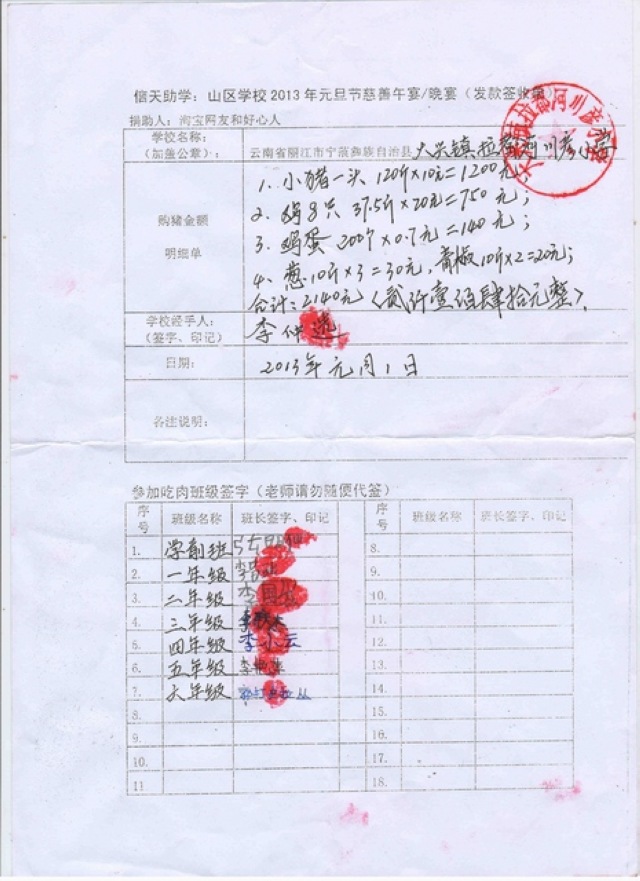 信天助学：山区学校2013年元旦节慈善午宴/晚宴（发款签收单）
捐助人：淘宝网友和好心人
学校名称：
（加盖公章）：
云南省丽江市宁蒗彝族自治县大兴镇拉都河川彦小学
购猪金额
明细单
1. 小猪一头 120斤×10元=1200元；
2. 鸡8只 37.5斤×20元=750元；
3. 鸡蛋200个×0.7元=140元；
4. 葱10斤×3=30元，青椒10斤×2=20元；
合计：2140元（贰仟壹佰肆拾元整）。
学校经手人：
（签字、印记）
李仲
日期：
2013年元月1日
备注说明：
参加吃肉班级签字（老师请勿随便代签）
序号 班级名称 班长签字、印记 序号 班级名称 班长签字、印记
1. 学前班 8.
2. 一年级 李 9.
3. 二年级 李 10.
4. 三年级 李 11.
5. 四年级 李小云 12.
6. 五年级 李 13.
7. 六年级 14.
8. 15.
9. 16.
10. 17.
11 18.